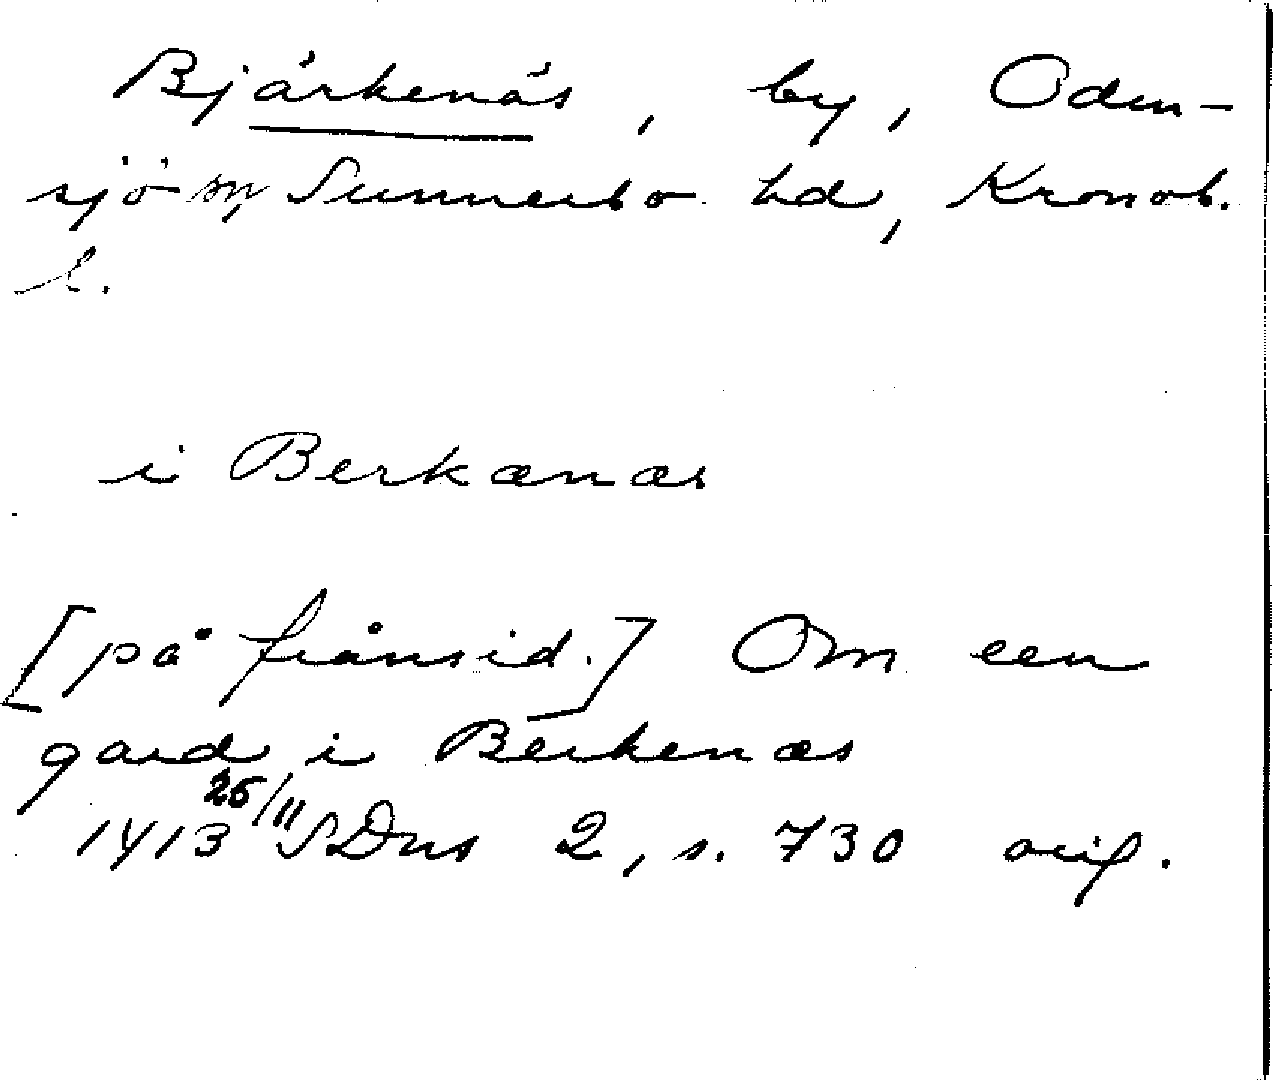 Bjärkenäs, by, Oden-
sjö sn, Sunnerbo hd, Kronob.
l.
i Berkænæs
[på frånsid.] Om een
gard i Berkenæs
1413 25/11 SDns 2, s. 730 orig.